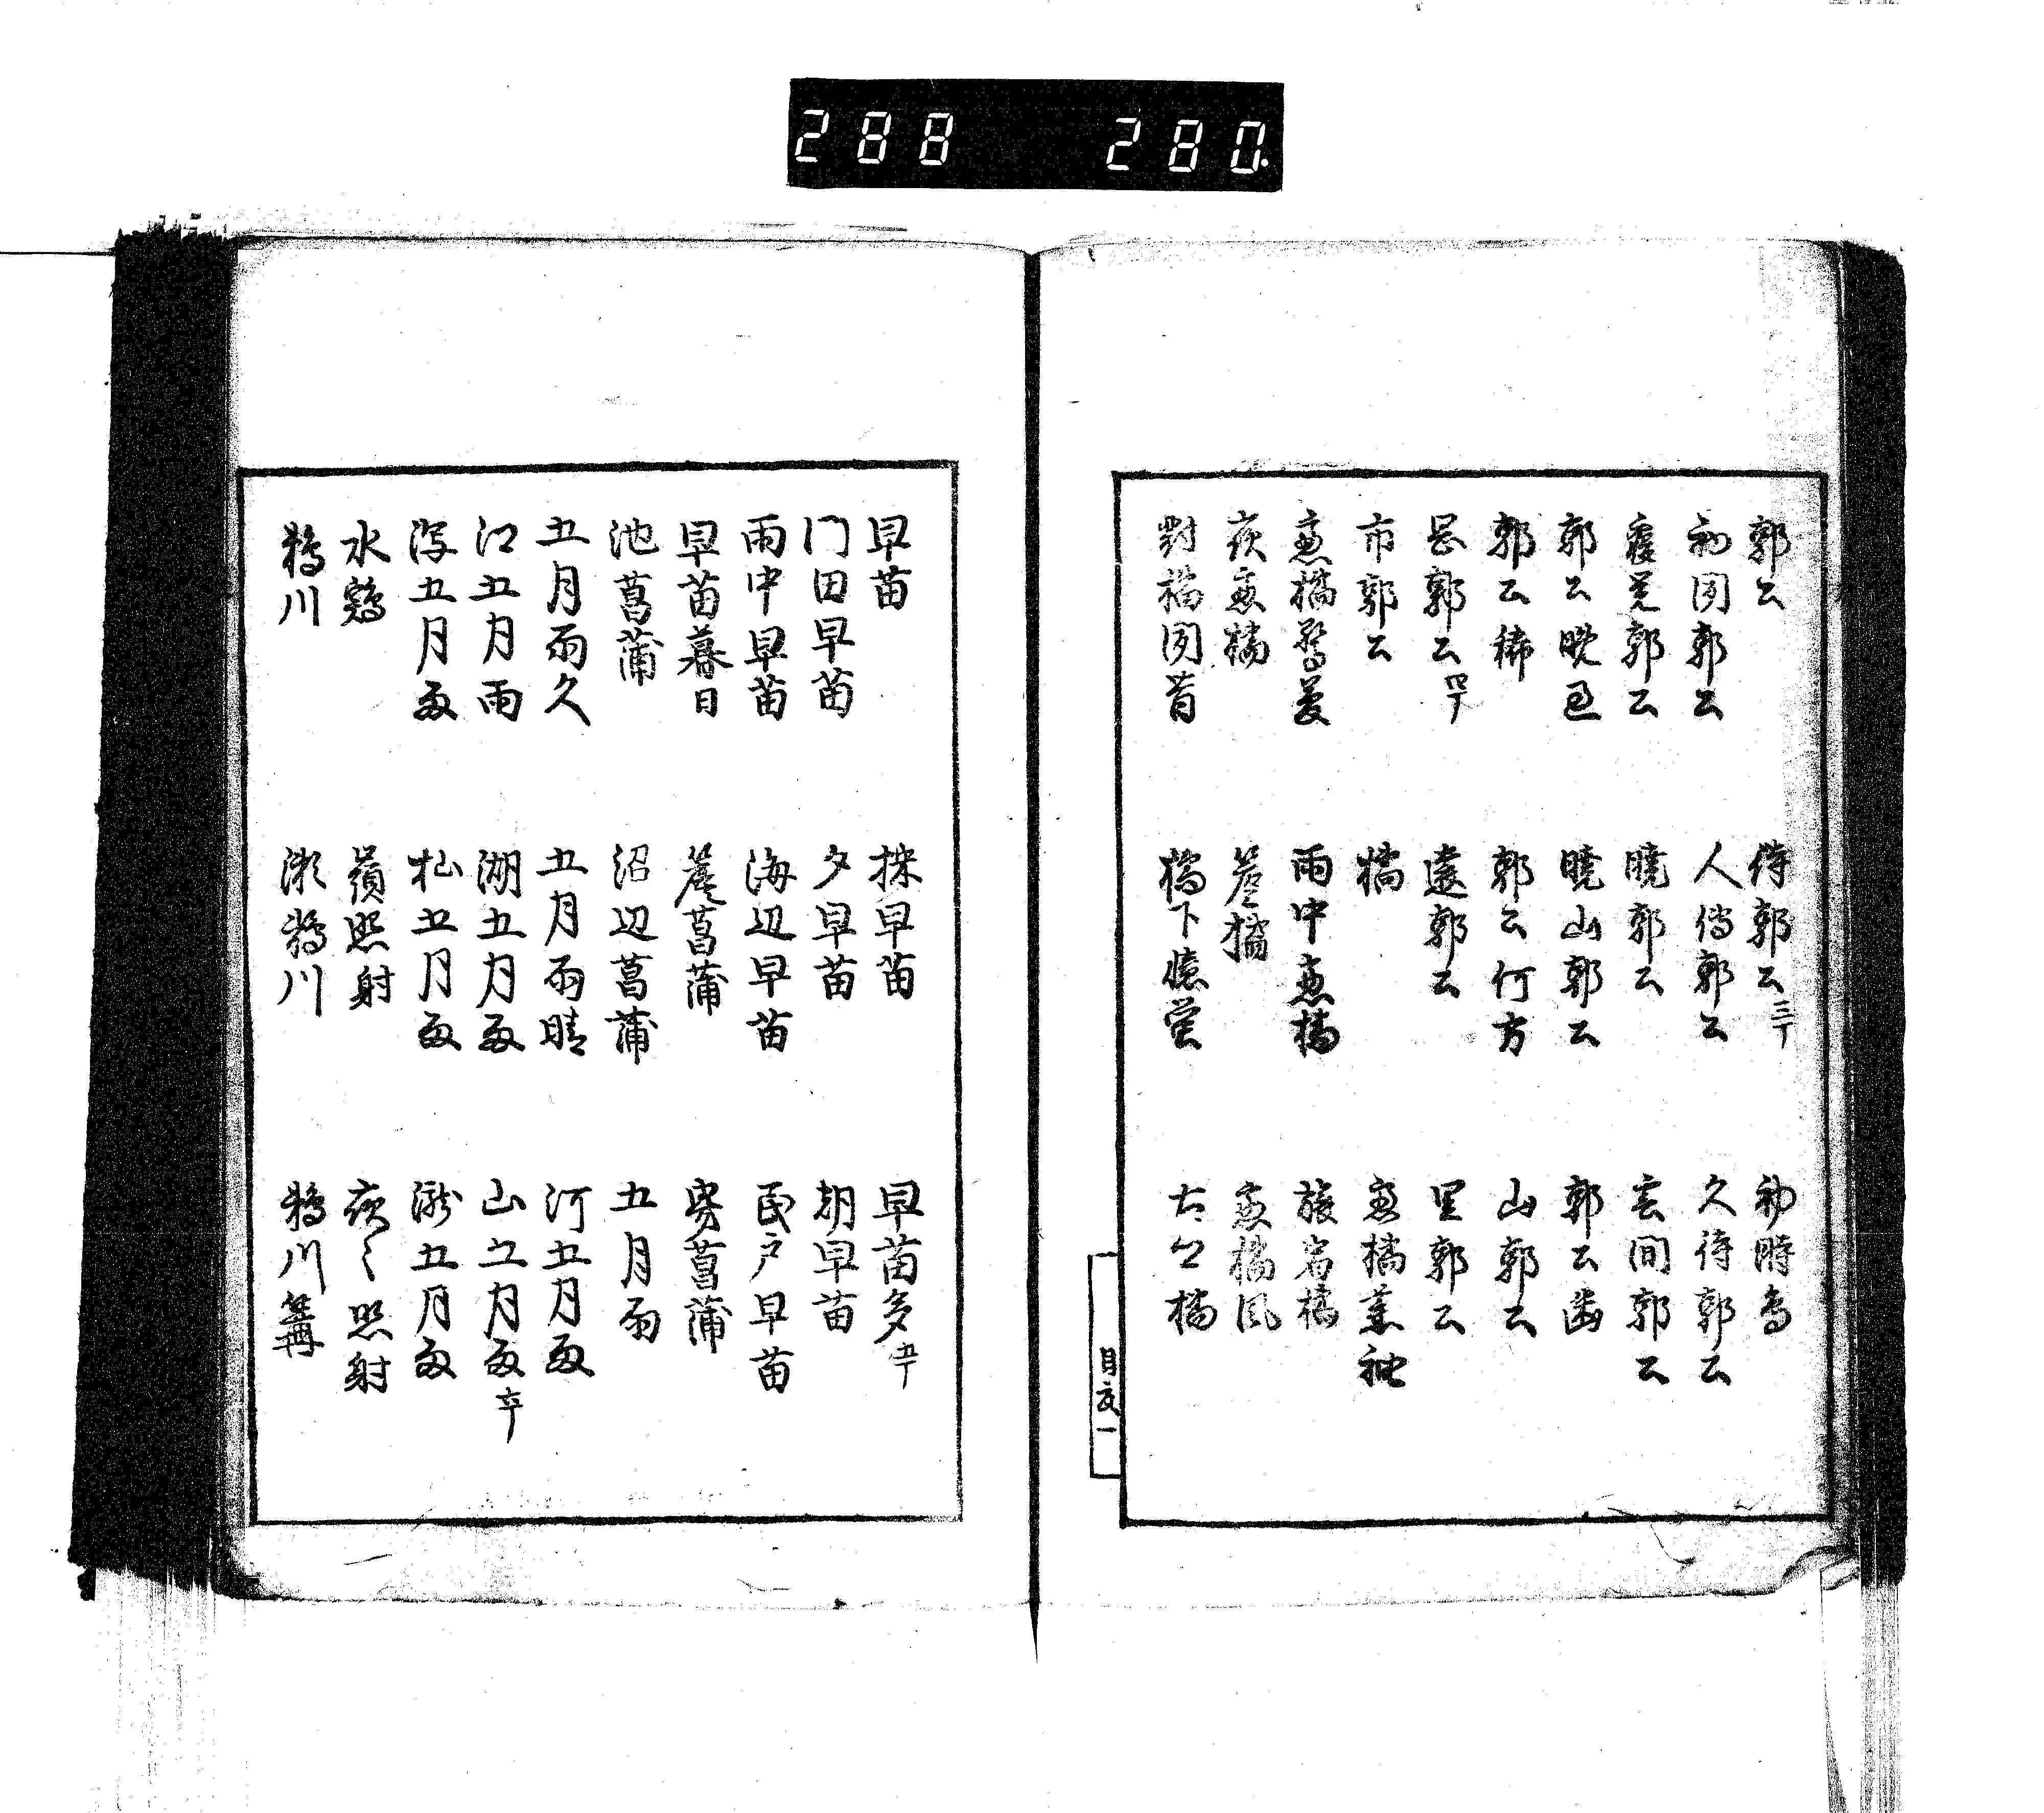 288 280
郭公 待郭公 三丁 初時鳥
初聞郭公 人伝郭公 久待郭公
寝覚郭公 暁郭公 雲間郭公
郭公暁過 暁山郭公 郭公幽
郭公稀 郭公何方 山郭公
岡郭公 四丁 遠郭公 里郭公
市郭公 橘 盧橘薫袖
盧橘驚夢 雨中盧橘 旅宿橘
夜盧橘 簷橘 盧橘風
対橘問昔 橘下蛍 古今橘
目次一
早苗 採早苗 早苗多 五丁
门田早苗 夕早苗 朝早苗
雨中早苗 海辺早苗 民戸早苗
早苗暮日 簷菖蒲 菖蒲
池菖蒲 沼辺菖蒲 五月雨
五月雨久 五月雨晴 河五月雨
江五月雨 湖五月雨 山五月雨 六丁
五月雨 杜五月雨 瀧五月雨
水鶏 嶺照射 夜々照射
鵜川 瀬鵜川 鵜川篝